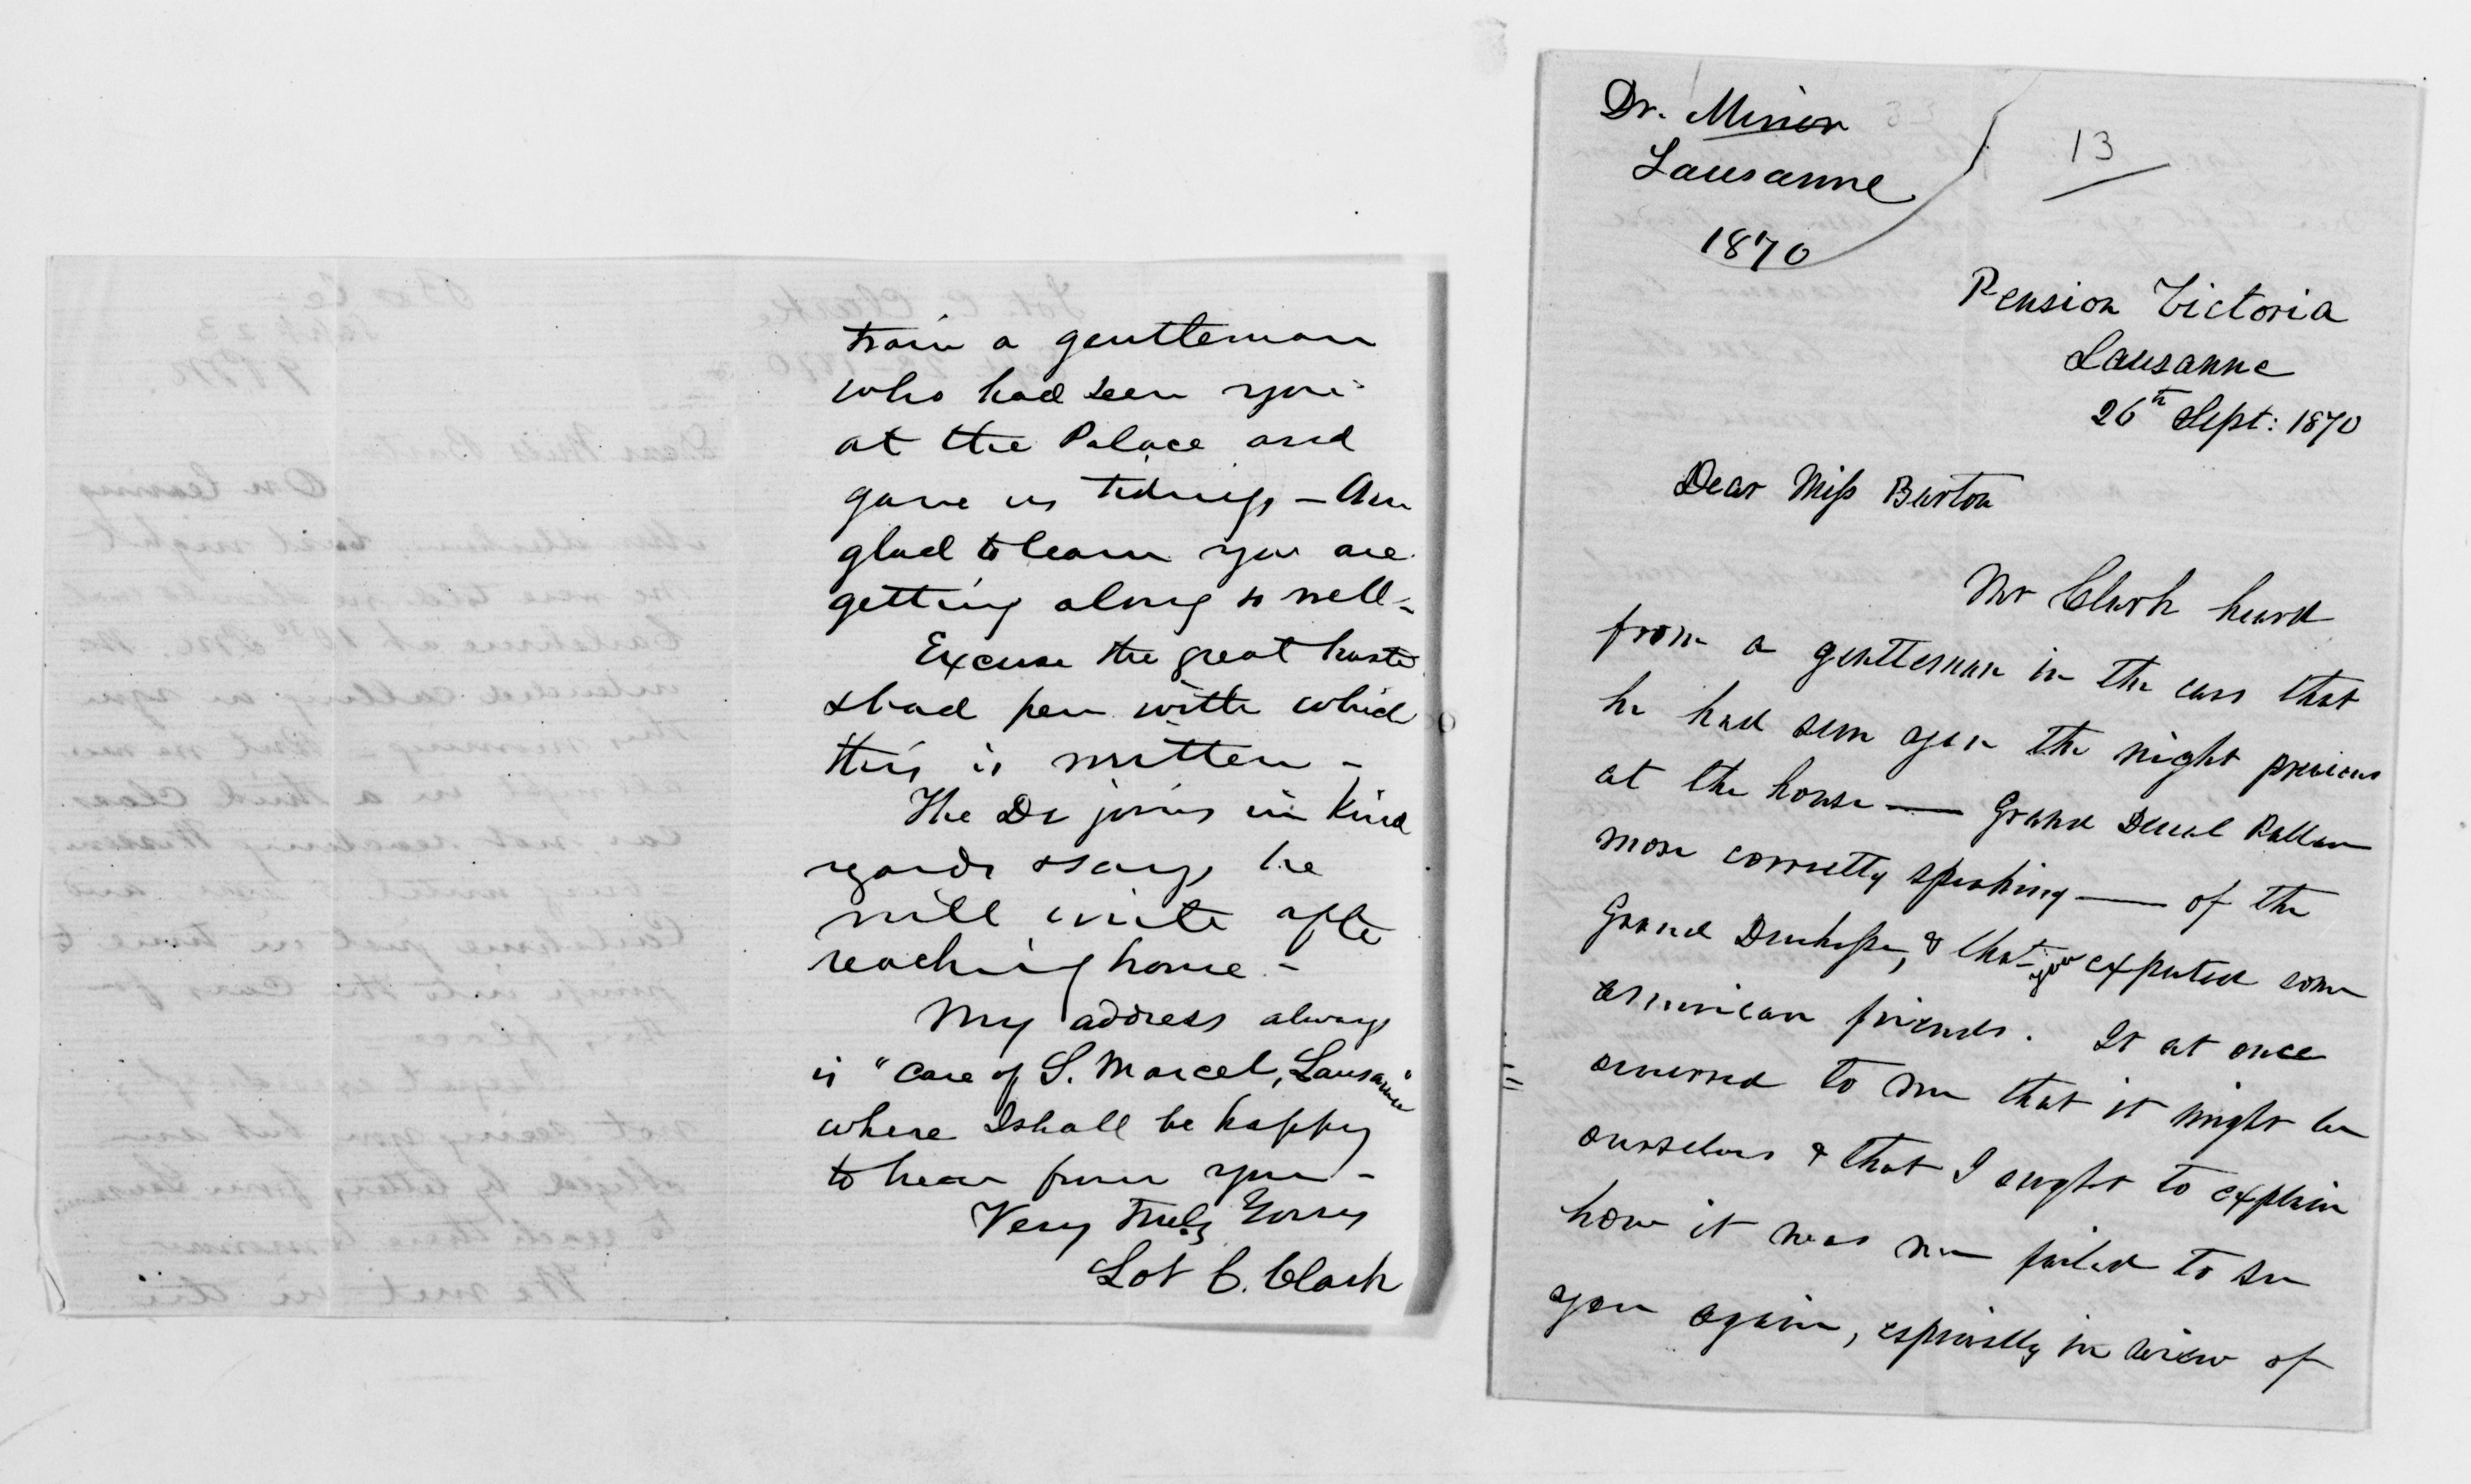 train a gentleman
who had seen you
at the Palace and
gave us tidings – Am
glad to learn you are
getting along so well –
Excuse the great haste
& bad pen with which
this is written –
The Dr joins in kind
regards & says he
will write after
reaching home. –
My address always
is "Care of S. Marcel, Lausanne"
where I shall be happy
to hear from you –
Very Truly Yours
Lot C. Clark
Dr. Minor
Lausanne
1870
13
Pension Victoria
Lausanne
26th Sept: 1870
Dear Miss Barton
Mr Clark heard
from a gentleman in the cars that
he had seen you the night previous
at the house — Grand Ducal Pallace
more correctly speaking — of the
Grand Duchesse, & that you expected some
American friends. It at once
occurred to me that it might be
ourselves & that I ought to explain
how it was we failed to see
you again, especially in view of